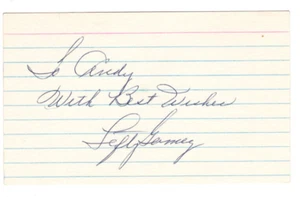 To Andy
With Best Wishes
Lefty Gomez